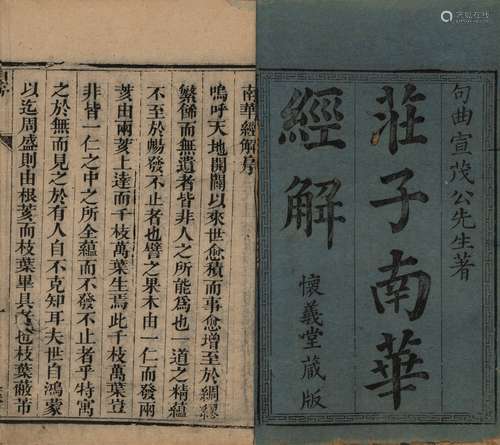 句曲宣茂公先生著
莊子南華
經解
懷義堂藏版
南華經解序
嗚呼天地開闢以來世愈積而事愈增至於綢繆
繁俻而無遺者皆非人之所能為也一道之精蘊
不至於暢發不止者也譬之果木由一仁而發兩
荄由兩荄上達而千枝萬葉生焉此千枝萬葉豈
非皆一仁之中之所全蘊而不發不止者乎特寓
之於無而見之於有人自不克知耳夫世自鴻蒙
以迄周盛則由根荄而枝葉畢具者也枝葉蔽芾